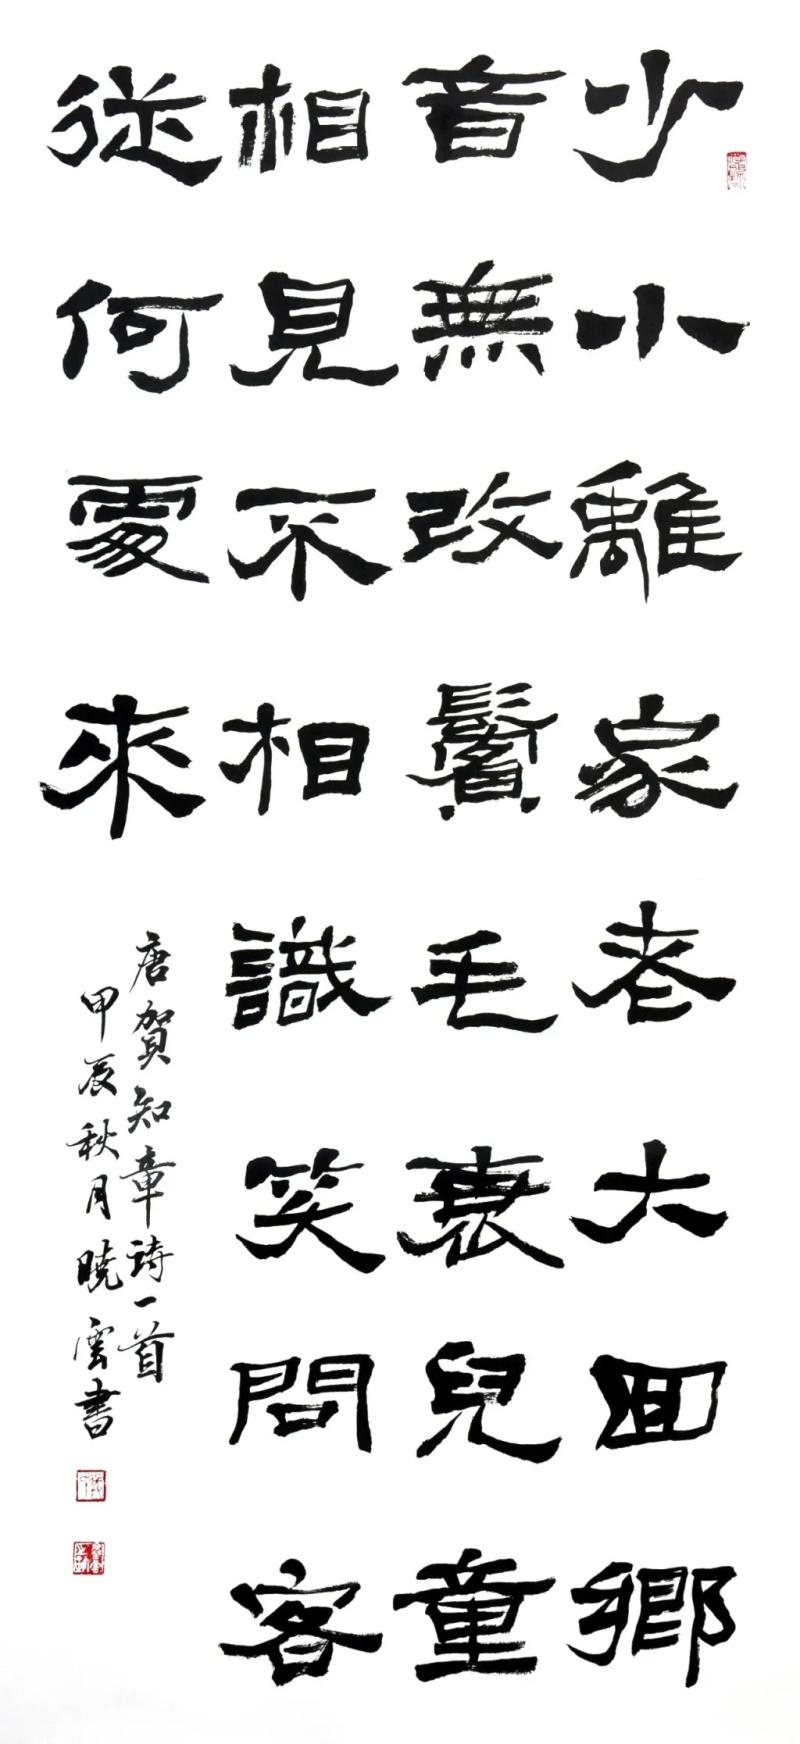 少小離家老大回鄉
音無改鬢毛衰兒童
相見不相識笑問客
從何處來
唐賀知章詩一首
甲辰秋月曉雲書